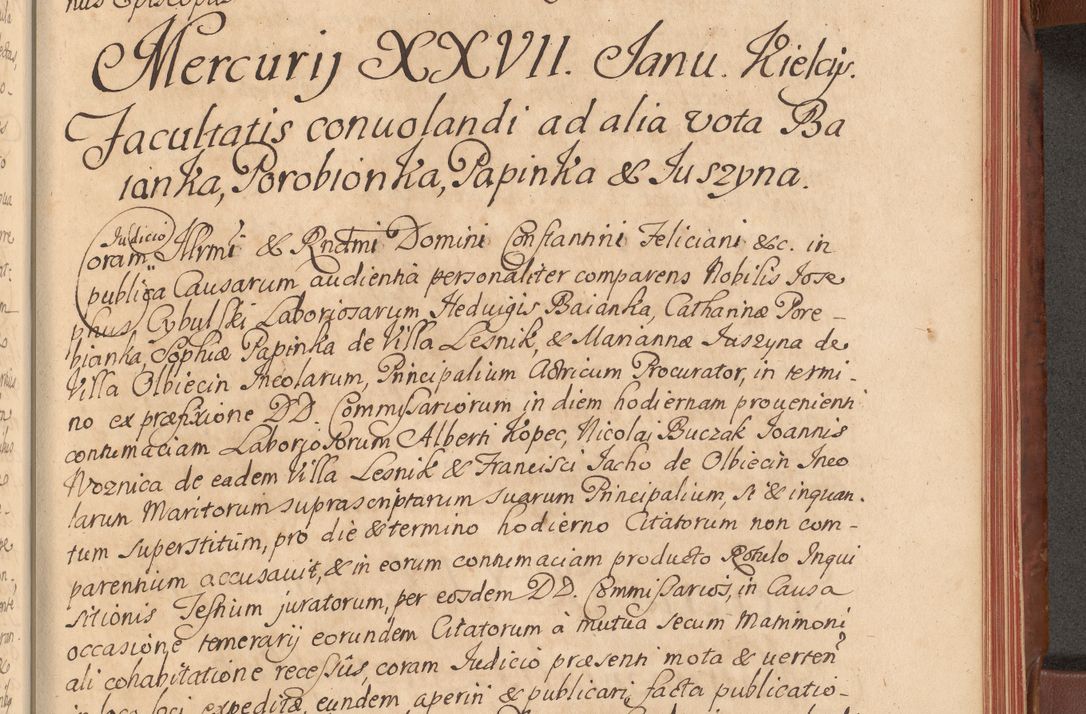 Mercurij XXVII. Janu. Kielcys.
Facultatis conuolandi ad alia vota Ba
ianka, Porobionka, Papinka & Juszyna.
Coram Judicio Illrmi & Rndmi Domini Constantini Feliciani &c. in
publica Causarum audientia personaliter comparens Nobilis Jose
phus Cybulski Laboriosarum Heduigis Baianka, Catharinæ Pore-
bianka, Sophiæ Papinka de Villa Lesnik, & Mariannæ Juszyna de
Villa Olbiecin Incolarum, Principalium Actricum Procurator, in termi-
no ex præfixione DD. Commissariorum in diem hodiernam prouenienti
contumaciam Laboriosorum Alberti Kopec, Nicolai Buczak Joannis
Woznica de eadem Villa Lesnik & Francisci Jacho de Olbiecin Inco
larum Maritorum suprascriptarum suarum Principalium, si & inquan.
tum superstitum, pro die & termino hodierno Citatorum non com-
parentium accusauit, & in eorum contumaciam producto Rotulo Inqui
sitionis Testium juratorum, per eosdem DD. Commissarios, in Causa
occasione temerarij eorundem Citatorum à mutua secum Matrimoni
ali cohabitatione recessûs, coram Judicio præsenti mota & uerten
in loco loci expeditæ, eundem aperiri & publicari, facta publicatio-